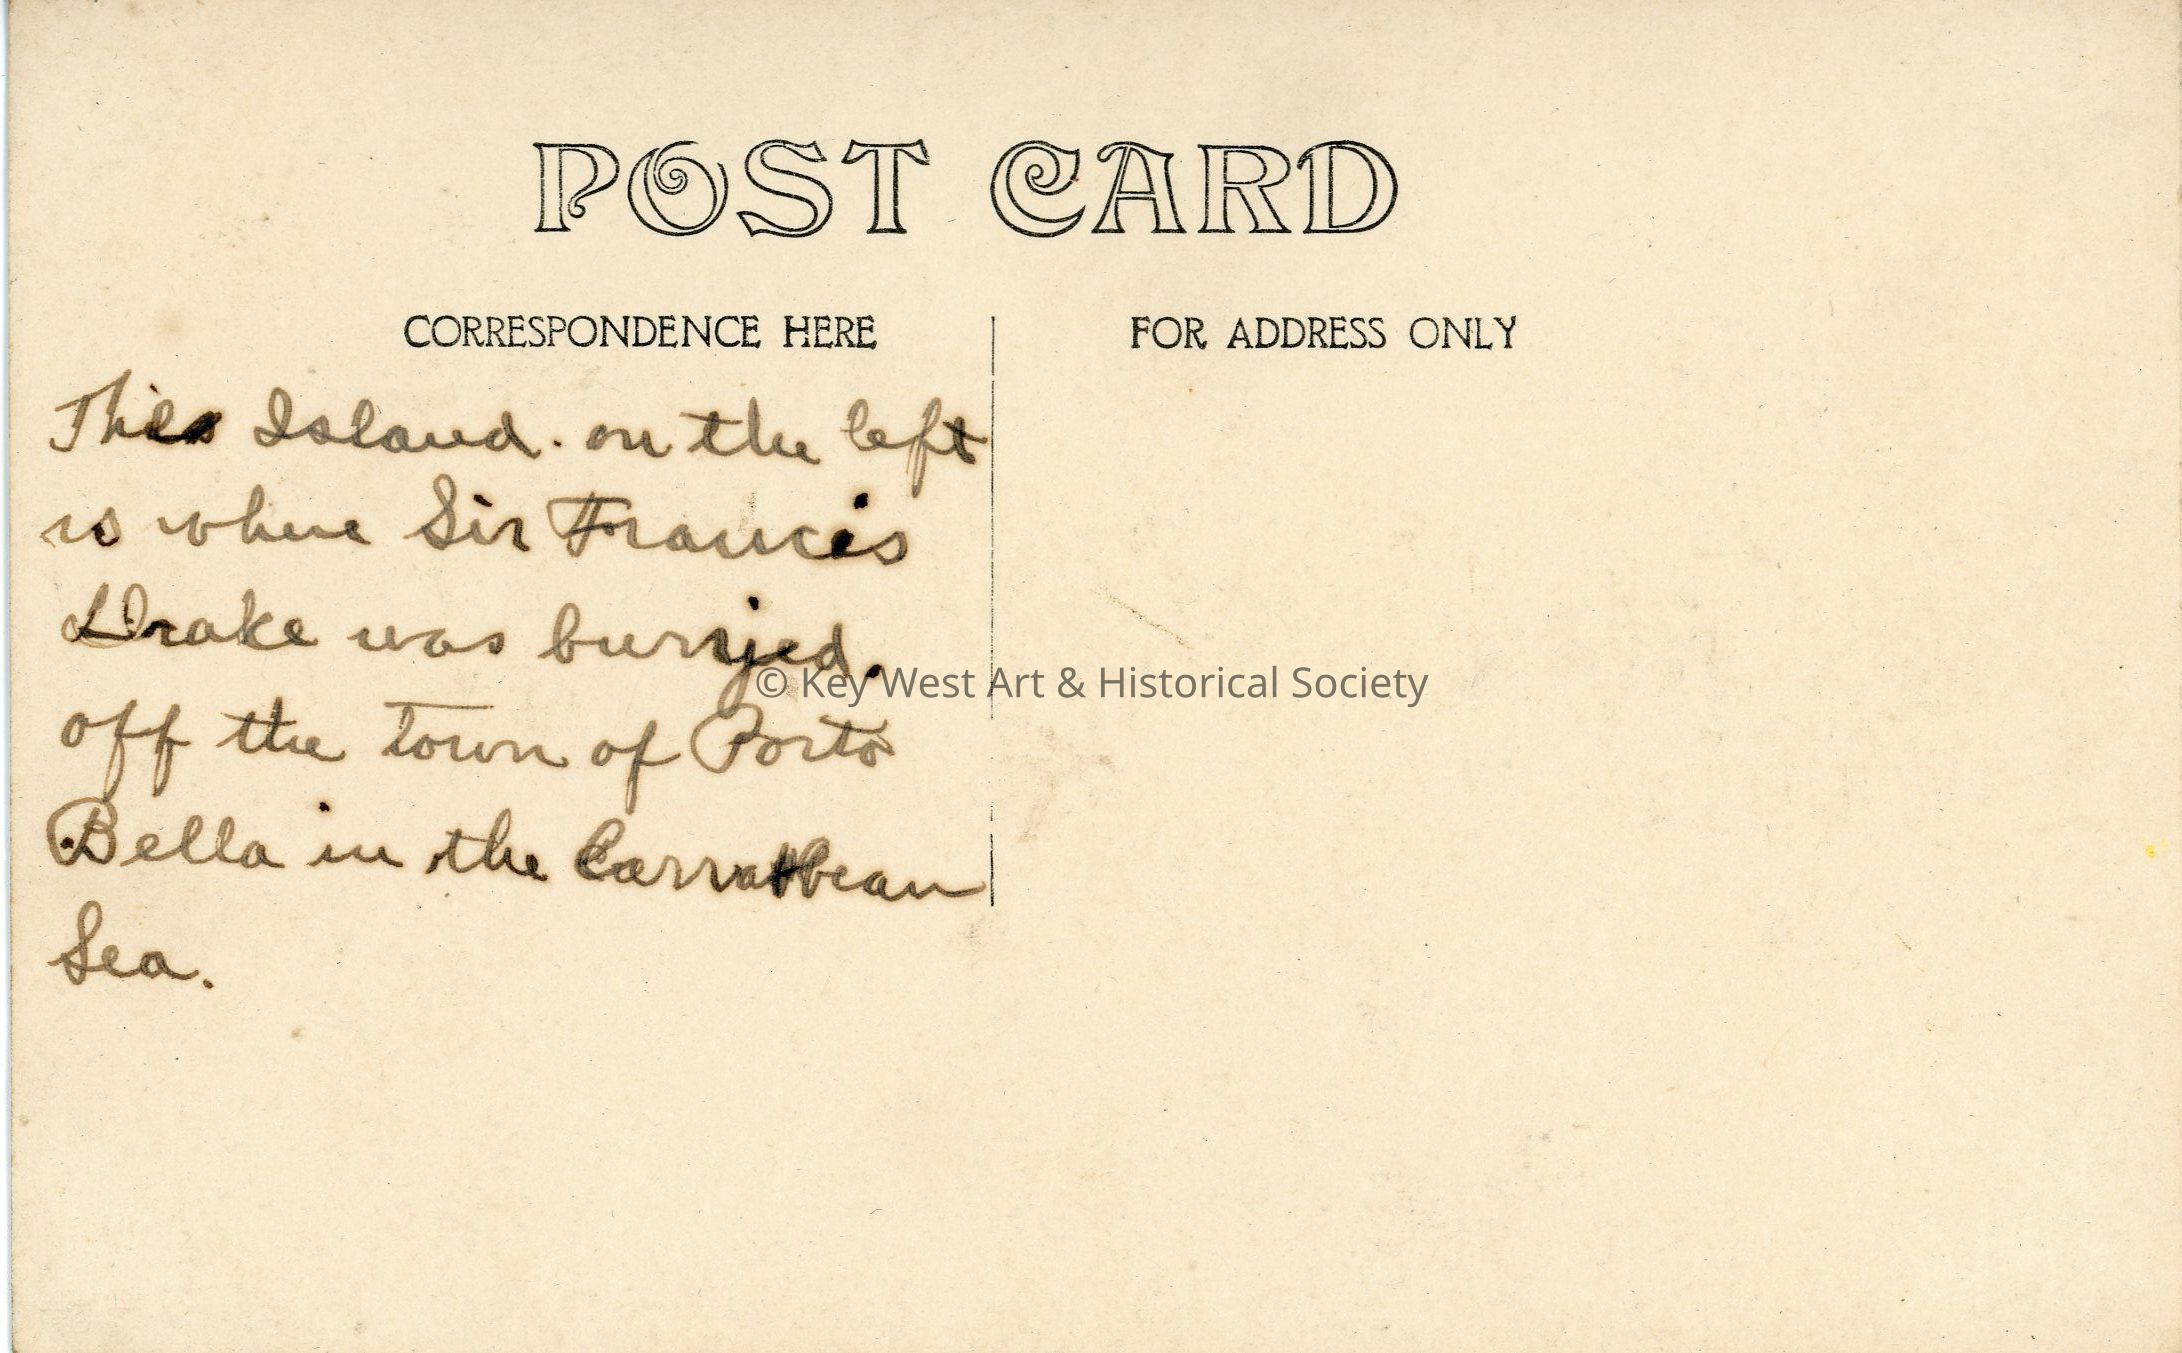 POST CARD
CORRESPONDENCE HERE
FOR ADDRESS ONLY
This Island. on the left
is where Sir Francis
Drake was burried.
© Key West Art & Historical Society
off the town of Porto
Bella in the
Sea.